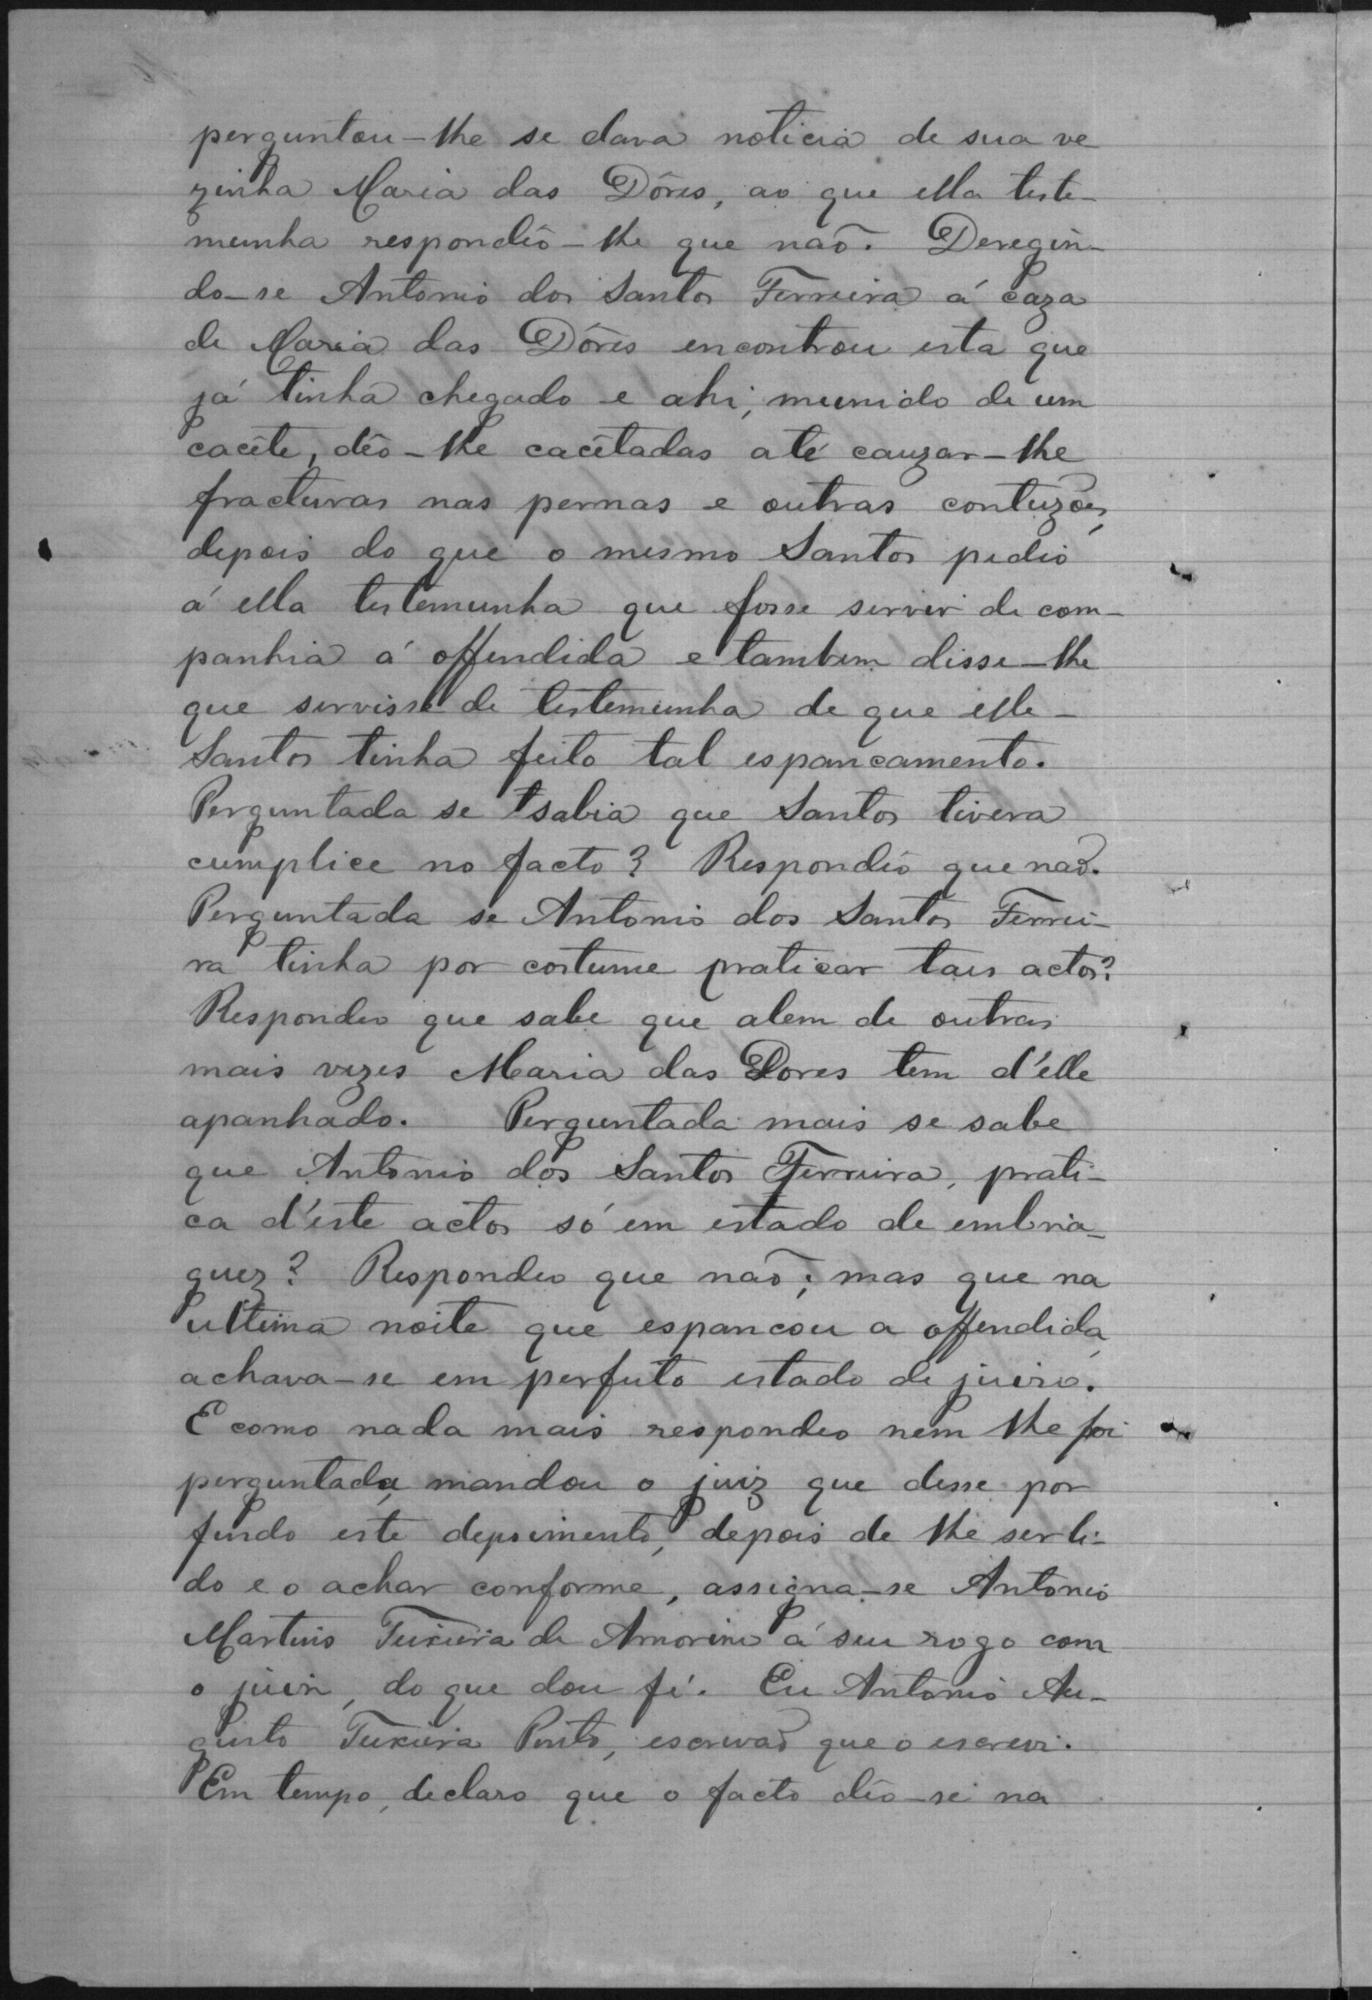 perguntou-lhe se dava noticia de sua ve
zinha Maria das Dôres, ao que ella teste-
munha respondêo-lhe que não. Deregin-
do-se Antonio dos Santos Ferreira á caza
de Maria das Dôres encontrou esta que
já tinha chegado e ahi, munido de um
cacête, dêo-lhe cacêtadas até cauzar-lhe
fracturas nas pernas e outras contuzões,
depois do que o mesmo Santos pedio
á ella testemunha que fosse servir de com-
panhia á offendida e tambem disse-lhe
que servisse de testemunha de que elle-
Santos tinha feito tal espancamento.
Perguntada se sabia que Santos tivera
cumplice no facto? Respondêo que não.
Perguntada se Antonio dos Santos Ferrei-
ra tinha por costume praticar tais actos?
Respondeo que sabe que alem de outras
mais vezes Maria das Dores tem d'élle
apanhado. Perguntada mais se sabe
que Antonio dos Santos Ferreira, prati-
ca d'éste actos só em estado de embria-
guez? Respondeo que não; mas que na
ultima noite que espancou a offendida,
achava-se em perfeito estado de juizo.
E como nada mais respondeo nem lhe foi
perguntada, mandou o juiz que desse por
findo este depoimento, depois de lhe ser li-
do e o achar conforme, assigna-se Antonio
Martins Teixeira de Amorim á seu rogo com
o juiz, do que dou fé. Eu Antonio Au-
gusto Teixeira Pinto, escrivão que o escrevi.
Em tempo, declaro que o facto dêo-se na